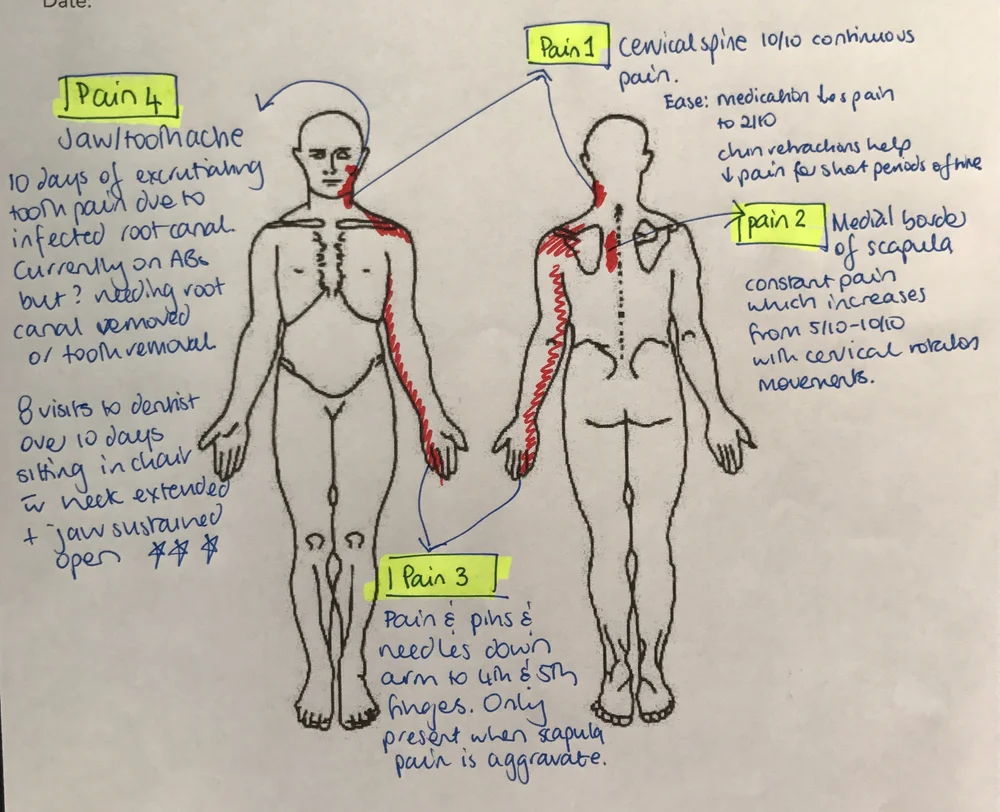 Date:
Pain 1
Cervical spine 10/10 continuous
pain.
Ease: medication ↓es pain
to 2/10
chin retractions help
↓ pain for short periods of time
pain 2
Medial border
of scapula
constant pain
which increases
from 5/10-10/10
with cervical rotation
movements.
Pain 4
Jaw/toothache
10 days of excrutiating
tooth pain due to
infected root canal.
Currently on ABs
but ? needing root
canal removed
or tooth removal
8 visits to dentist
over 10 days
sitting in chair
w neck extended
+ jaw sustained
open ☆☆☆
Pain 3
Pain & pins &
needles down
arm to 4th & 5th
finges. Only
present when scapula
pain is aggravate.